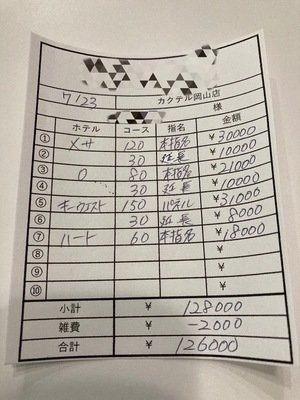 7/23 カクテル岡山店
様
ホテル コース 指名 金額
① メサ 120 本指名 ¥30000
② 30 延長 ¥10000
③ O 80 本指名 ¥21000
④ 30 延長 ¥10000
⑤ キーウエスト 150 パネル ¥31000
⑥ 30 延長 ¥8000
⑦ ハート 60 本指名 ¥18000
⑧
⑨
⑩
小計 ¥ 128000
雑費 ¥ -2000
合計 ¥ 126000